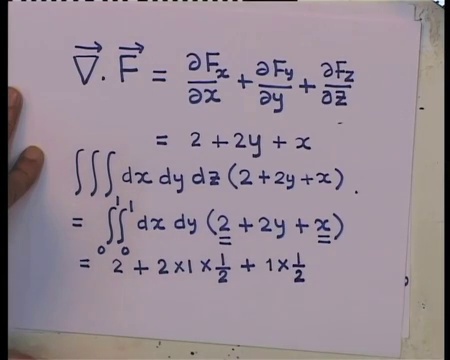 ∇⃗ . F⃗ = ∂Fx/∂x + ∂Fy/∂y + ∂Fz/∂z
= 2 + 2y + x
∭ dx dy dz (2 + 2y + x) .
= ∫₀¹∫₀¹ dx dy (2 + 2y + x)
= 2 + 2 × 1 × 1/2 + 1 × 1/2